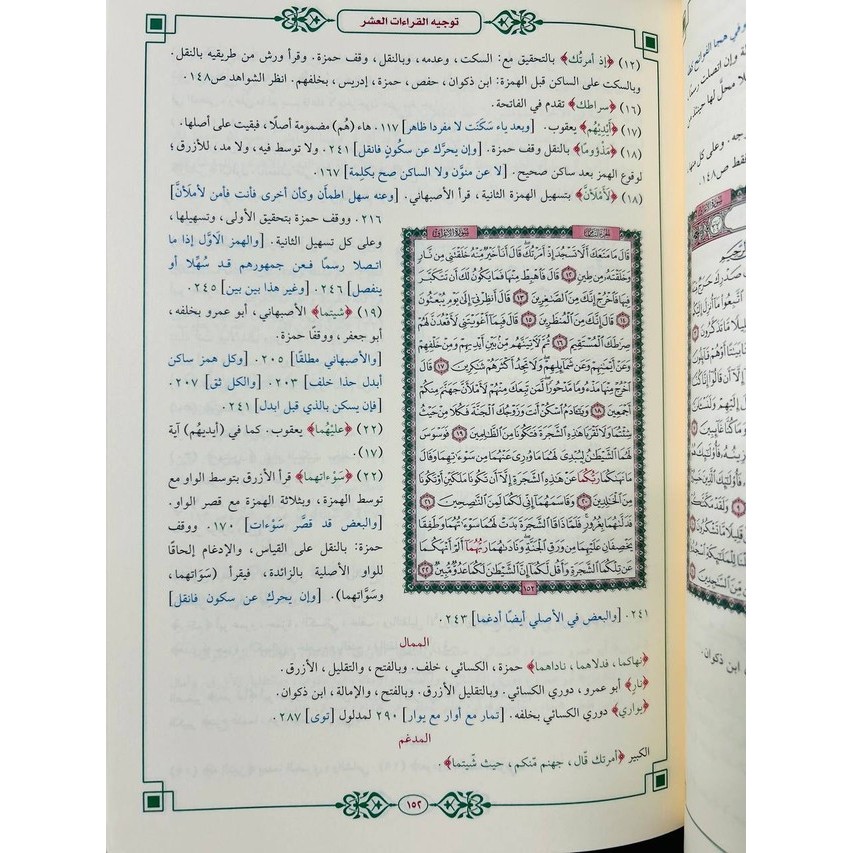 توجيه القراءات العشر
(١٢) ﴿إذ أمرتُك﴾ بالتحقيق مع: السكت، وعدمه، وبالنقل، وقف حمزة. وقرأ ورش من طريقيه بالنقل.
وبالسكت على الساكن قبل الهمزة: ابن ذكوان، حفص، حمزة، إدريس، بخلفهم. انظر الشواهد ص١٤٨.
(١٦) ﴿سراطك﴾ تقدم في الفاتحة.
(١٧) ﴿أَيْدِيْهُم﴾ يعقوب. [وبعد ياء سَكَنَت لا مفردا ظاهر] ١١٧. هاء (هُم) مضمومة أصلًا، فبقيت على أصلها.
(١٨) ﴿مَذْؤومًا﴾ بالنقل وقف حمزة. [وإن يحرَّك عن سكُونٍ فانقل] ٢٤١. ولا توسط فيه، ولا مد للأزرق؛
لوقوع الهمز بعد ساكن صحيح. [لا عن منوَّن ولا الساكن صح بكلِمة] ١٦٧
(١٨) ﴿لَأَمْلَأنَّ﴾ بتسهيل الهمزة الثانية، قرأ الأصبهاني. [وعنه سهل اطمأن وكأن أخرى فأنت فأمن لأملأنَّ]
٢١٦. ووقف حمزة بتحقيق الأولى، وتسهيلها،
وعلى كل تسهيل الثانية. [والهمز الاوَّل إذا ما
اتصلا رسمًا فعن جمهورهم قد سُهِّلا أو
ينفصل] ٢٤٦. [وغير هذا بين بين] ٢٤٥
(١٩) ﴿شيتما﴾ الأصبهاني، أبو عمرو بخلفه،
أبو جعفر، ووقفًا حمزة.
[والأصبهاني مطلقًا] ٢٠٥. [وكل همز ساكن
أبدل حذا خلف] ٢٠٣. [والكل ثق] ٢٠٧.
[فإن يسكن بالذي قبل ابدل] ٢٤١
(٢٢) ﴿عليْهُما﴾ يعقوب. كما في (أيديهُم) آية
(١٧).
(٢٢) ﴿سَوْءَاتهما﴾ قرأ الأزرق بتوسط الواو مع
توسط الهمزة، وبثلاثة الهمزة مع قصر الواو.
[والبعض قد قصَّر سَوْءات] ١٧٠. ووقف
حمزة: بالنقل على القياس، والإدغام إلحاقًا
للواو الأصلية بالزائدة، فيقرأ (سَوَاتهما،
وسَوَّاتهما). [وإن يحرك عن سكون فانقل]
سورة الأعراف
قَالَ مَا مَنَعَكَ أَلَّا تَسْجُدَ إِذْ أَمَرْتُكَ قَالَ أَنَا۠ خَيْرٌ مِّنْهُ خَلَقْتَنِي مِن نَّارٍ
وَخَلَقْتَهُۥ مِن طِينٍ ١٢ قَالَ فَٱهْبِطْ مِنْهَا فَمَا يَكُونُ لَكَ أَن تَتَكَبَّرَ
فِيهَا فَٱخْرُجْ إِنَّكَ مِنَ ٱلصَّٰغِرِينَ ١٣ قَالَ أَنظِرْنِيٓ إِلَىٰ يَوْمِ يُبْعَثُونَ
١٤ قَالَ إِنَّكَ مِنَ ٱلْمُنظَرِينَ ١٥ قَالَ فَبِمَآ أَغْوَيْتَنِي لَأَقْعُدَنَّ لَهُمْ
صِرَٰطَكَ ٱلْمُسْتَقِيمَ ١٦ ثُمَّ لَأَتِيَنَّهُم مِّنۢ بَيْنِ أَيْدِيهِمْ وَمِنْ خَلْفِهِمْ
وَعَنْ أَيْمَٰنِهِمْ وَعَن شَمَآئِلِهِمْ وَلَا تَجِدُ أَكْثَرَهُمْ شَٰكِرِينَ ١٧ قَالَ
ٱخْرُجْ مِنْهَا مَذْءُومًا مَّدْحُورًا لَّمَن تَبِعَكَ مِنْهُمْ لَأَمْلَأَنَّ جَهَنَّمَ مِنكُمْ
أَجْمَعِينَ ١٨ وَيَٰٓـَٔادَمُ ٱسْكُنْ أَنتَ وَزَوْجُكَ ٱلْجَنَّةَ فَكُلَا مِنْ حَيْثُ
شِئْتُمَا وَلَا تَقْرَبَا هَٰذِهِ ٱلشَّجَرَةَ فَتَكُونَا مِنَ ٱلظَّٰلِمِينَ ١٩ فَوَسْوَسَ
لَهُمَا ٱلشَّيْطَٰنُ لِيُبْدِيَ لَهُمَا مَا وُۥرِيَ عَنْهُمَا مِن سَوْءَٰتِهِمَا وَقَالَ
مَا نَهَىٰكُمَا رَبُّكُمَا عَنْ هَٰذِهِ ٱلشَّجَرَةِ إِلَّآ أَن تَكُونَا مَلَكَيْنِ أَوْ تَكُونَا
مِنَ ٱلْخَٰلِدِينَ ٢٠ وَقَاسَمَهُمَآ إِنِّي لَكُمَا لَمِنَ ٱلنَّٰصِحِينَ ٢١
فَدَلَّىٰهُمَا بِغُرُورٍ فَلَمَّا ذَاقَا ٱلشَّجَرَةَ بَدَتْ لَهُمَا سَوْءَٰتُهُمَا وَطَفِقَا
يَخْصِفَانِ عَلَيْهِمَا مِن وَرَقِ ٱلْجَنَّةِ وَنَادَىٰهُمَا رَبُّهُمَآ أَلَمْ أَنْهَكُمَا
عَن تِلْكُمَا ٱلشَّجَرَةِ وَأَقُل لَّكُمَآ إِنَّ ٱلشَّيْطَٰنَ لَكُمَا عَدُوٌّ مُّبِينٌ ٢٢
١٥٢
٢٤١. [والبعض في الأصلي أيضًا أدغما] ٢٤٣.
الممال
﴿نهاكما، فدلاهما، ناداهما﴾ حمزة، الكسائي، خلف. وبالفتح، والتقليل، الأزرق.
﴿نارٍ﴾ أبو عمرو، دوري الكسائي. وبالتقليل الأزرق. وبالفتح، والإمالة، ابن ذكوان.
﴿يواري﴾ دوري الكسائي بخلفه. [تمار مع أوار مع يوار] ٢٩٠ لمدلول [توى] ٢٨٧.
المدغم
الكبير ﴿أمرتك قال، جهنم مّنكم، حيث شّيتما﴾.
١٥٢